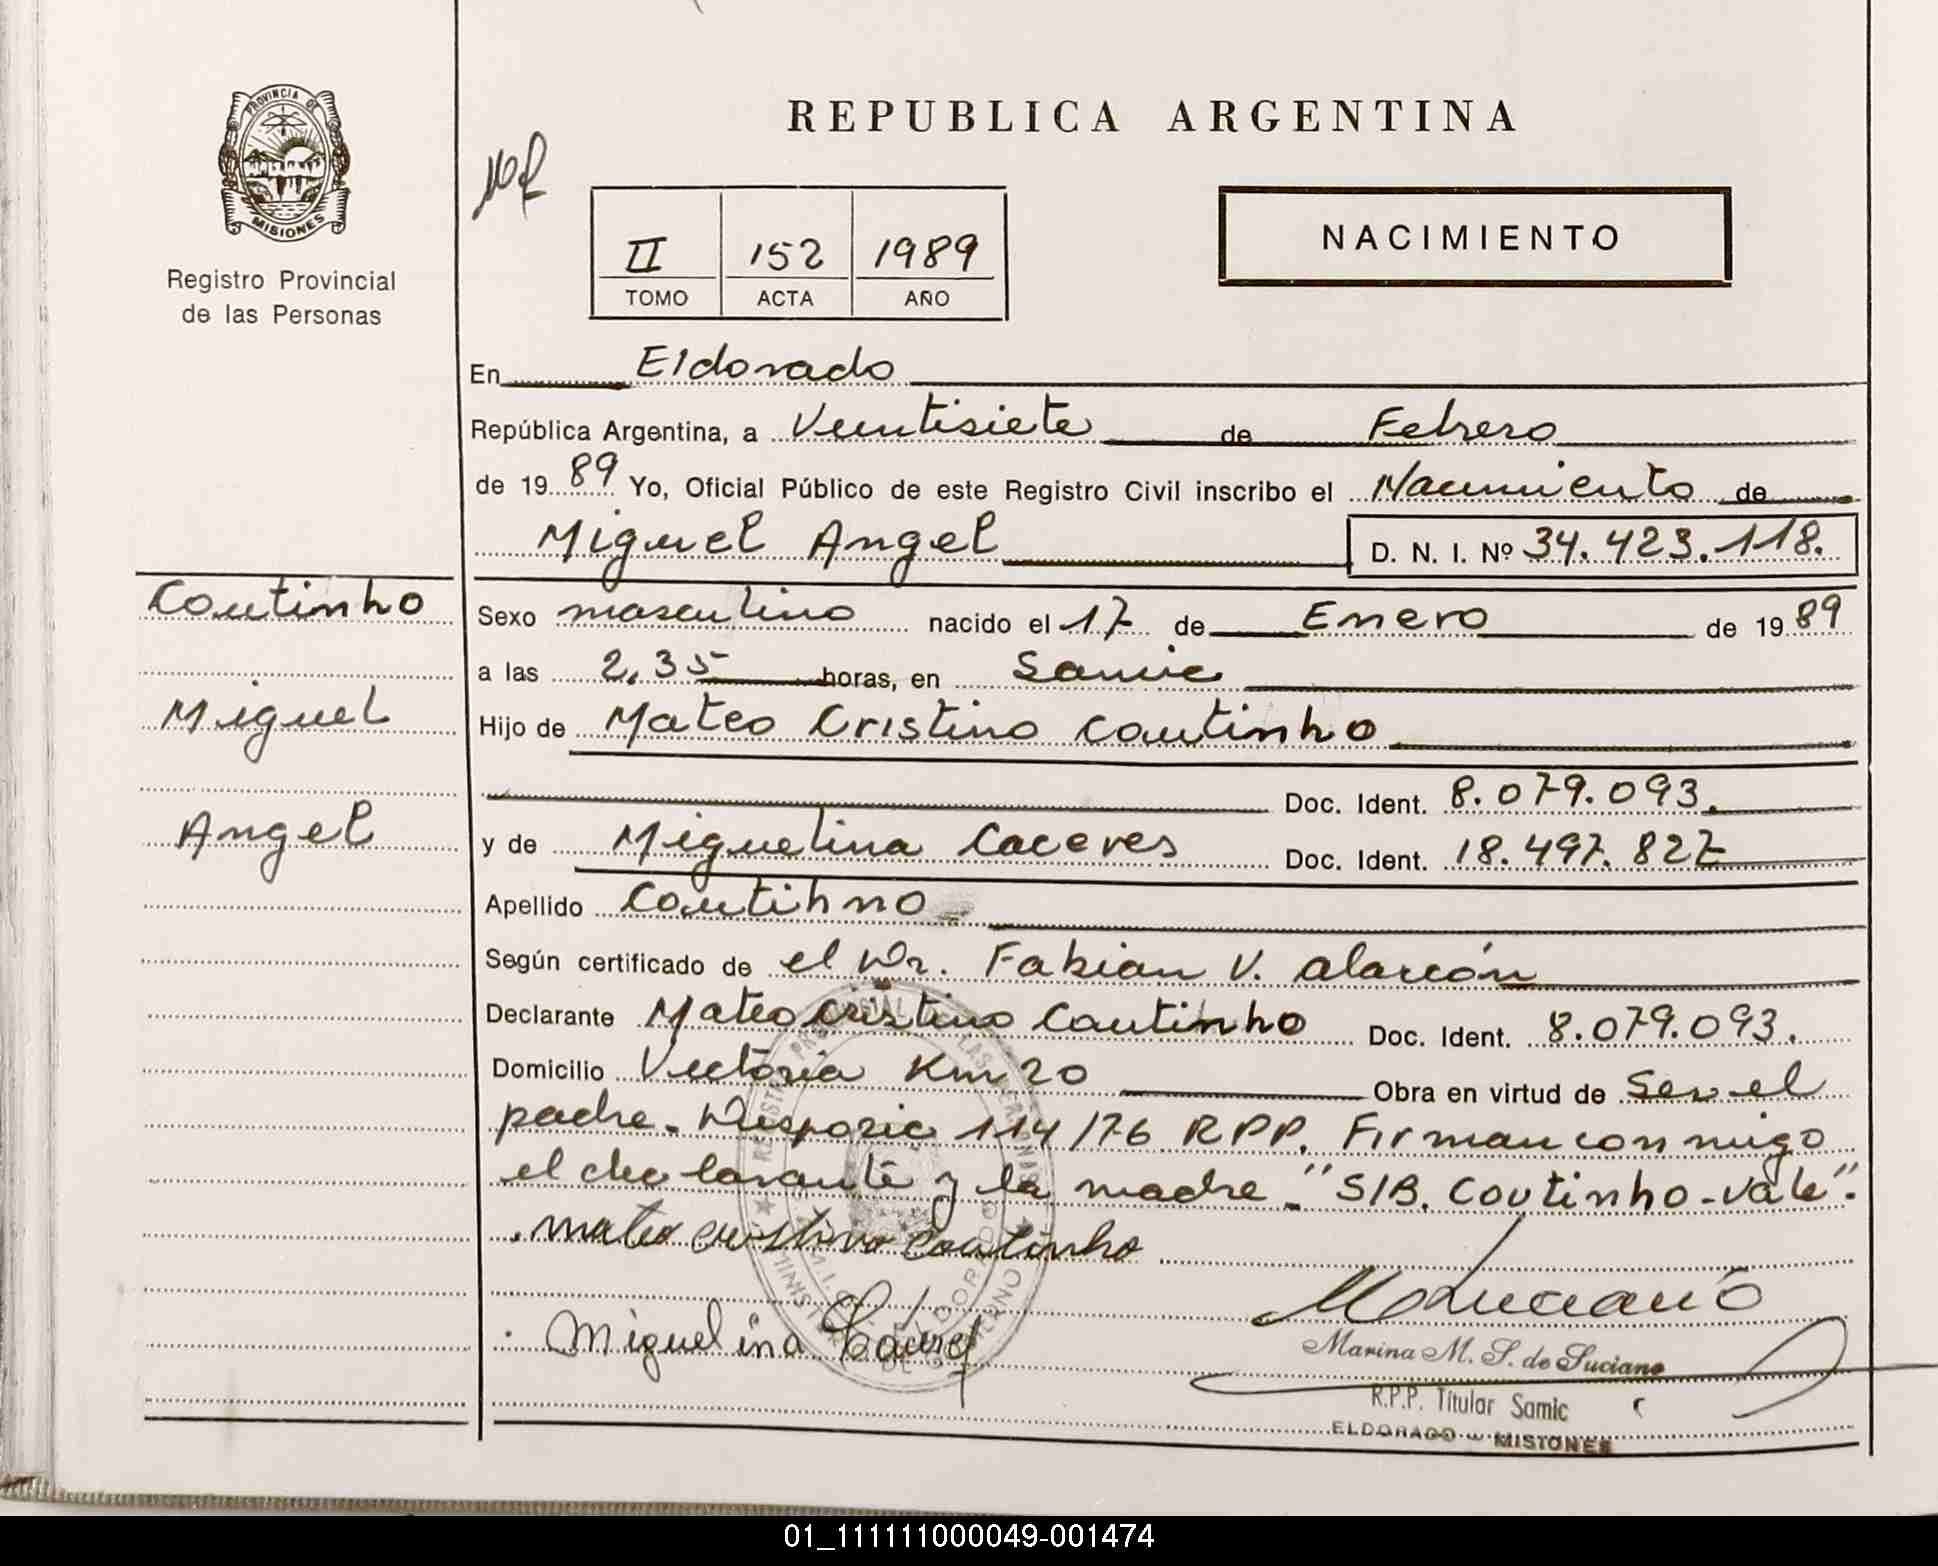 PROVINCIA DE
MISIONES
Registro Provincial
de las Personas
Coutinho
Miguel
Angel
REPUBLICA ARGENTINA
II 152 1989
TOMO ACTA AÑO
NACIMIENTO
En Eldorado
República Argentina, a Veintisiete de Febrero
de 1989 Yo, Oficial Público de este Registro Civil inscribo el Nacimiento de
Miguel Angel D. N. I. Nº 34.423.118.
Sexo masculino nacido el 17 de Enero de 1989
a las 2,35 horas, en Samic
Hijo de Mateo Cristino Coutinho
Doc. Ident. 8.079.093.
y de Miguelina Caceres Doc. Ident. 18.497.827
Apellido Coutihno
Según certificado de el Dr. Fabian V. Alarcón
Declarante Mateo Cristino Coutinho Doc. Ident. 8.079.093.
Domicilio Victoria Km 20 Obra en virtud de Ser el
padre. Disposic 114/76 RPP. Firman conmigo
el declarante y la madre. "S/B. Coutinho-Vale".
mateo cristino coutinho
Miguelina Caceres
M Luciano
Marina M. S. de Luciano
R.P.P. Titular Samic
ELDORADO - MISIONES
01_111111000049-001474